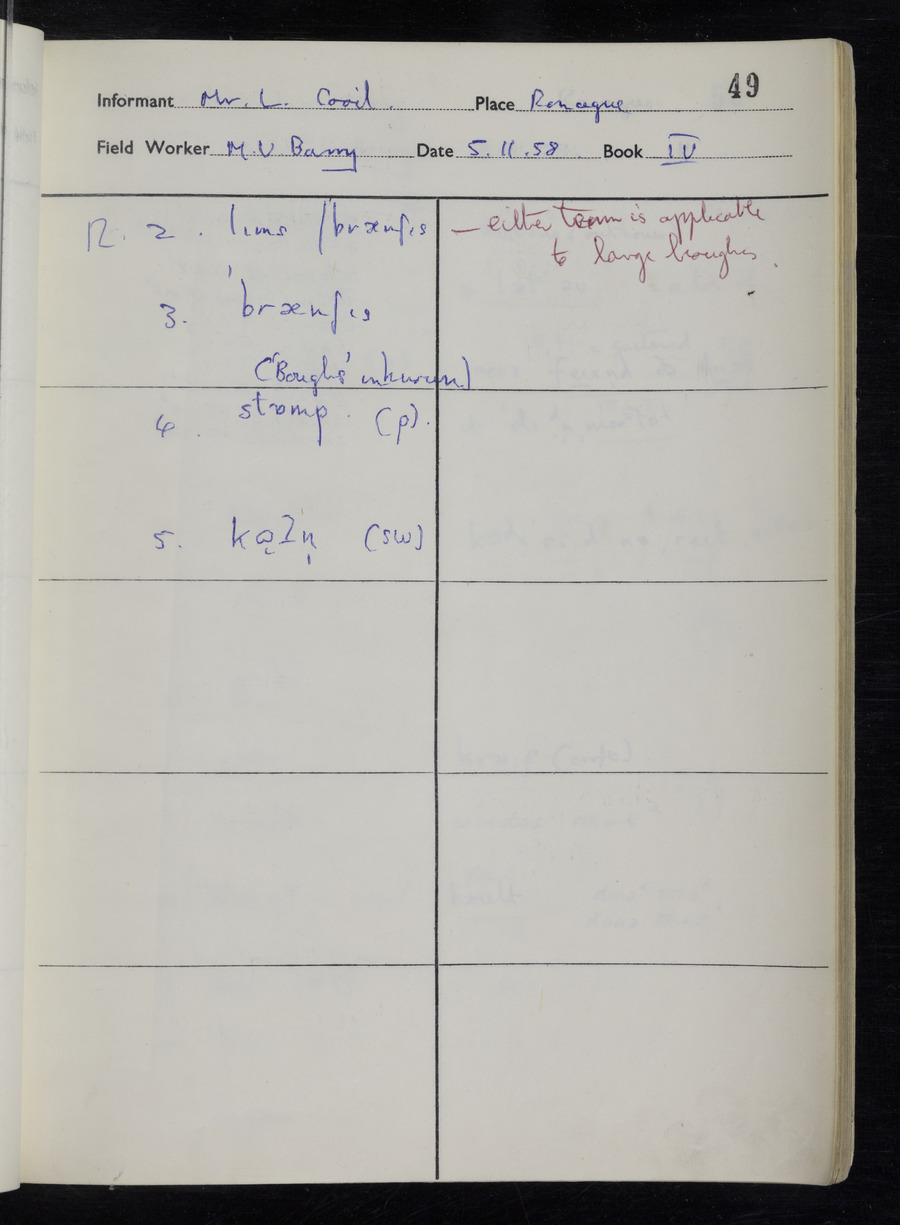 49
Informant Mr. L. Cooil. Place Ronague
Field Worker M. V Barry Date 5.11.58. Book IV
R. 2. lıms /brænʃıs — either term is applicable
to large boughs.
3. 'brænʃıs
('Boughs' unknown)
4. stɒmp. (p).
5. (sw)